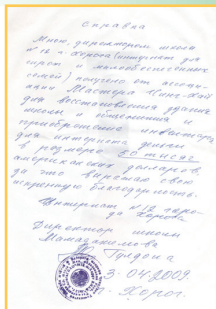 Справка
Мною, директором школы
№ 12 г. Хорога (интернат для
сирот и малообеспеченных
семей) получено от ассоци-
ации Мастера Чинг Хай
для восстановления здания
школы и
приобретения инвентаря
для интерната деньги
в размере 20 тысяч
американских долларов,
за что выражаю свою
искреннюю благодарность.
Интернат № 12 горо-
да Хорога
Директор школы
Мамадкимова
Гулдона
3.04.2009.
г. Хорог.